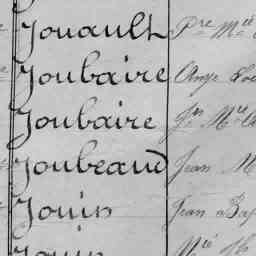 Jouault Pre Mie
Joubaire Ange
Joubaire Jn Mie
Joubeaud Jean M
Jouin Jean Bap
Jouin